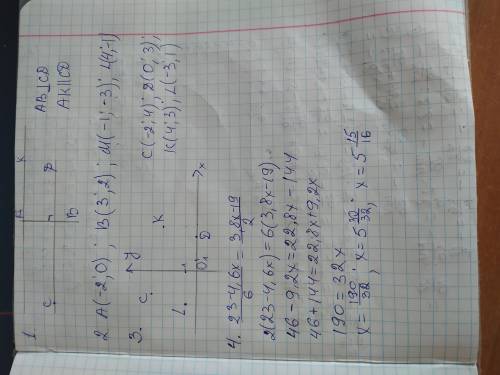 1.
A K
AB⊥CD
C D
B
AK∥CD
2 A(-2;0); B(3;2); M(-1;-3); L(4;-1)
3. y
C
C(-2;4); D(0;3);
K
K(4;3), L(-3;1)
L
0 D x
4. 23-4,6x/6 = 3,8x-19/2
2(23-4,6x)=6(3,8x-19)
46-9,2x=22,8x-144
46+144=22,8x+9,2x
190=32x
x=190/32; x=5 30/32; x=5 15/16